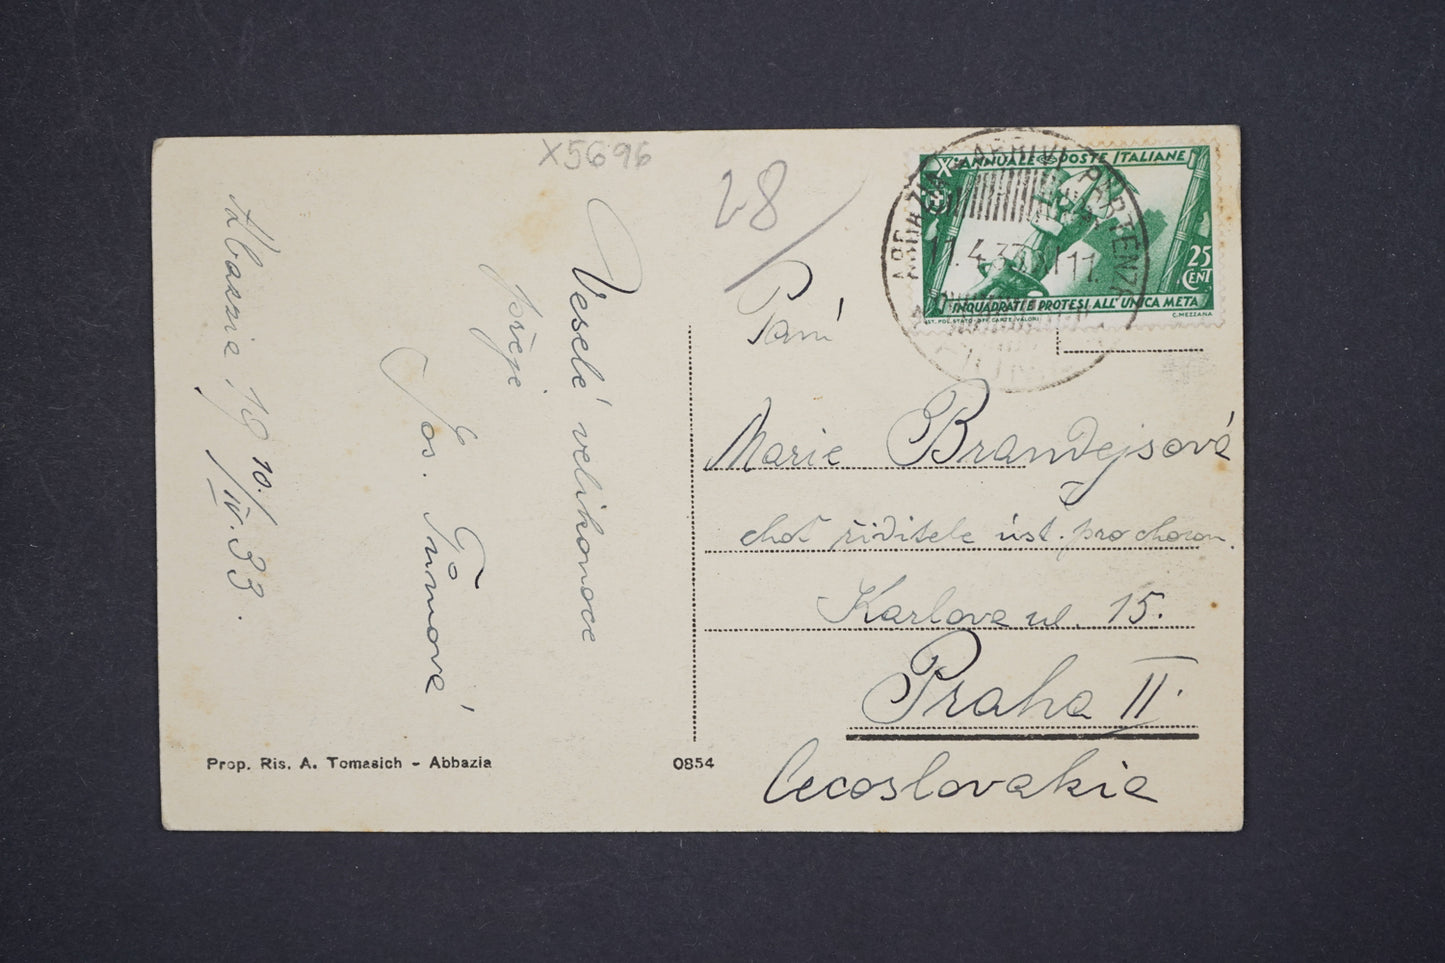 X5696
28
Veselé velikonoce
přeje
Jos. Tůmové
Abbazia, 10. /IV. 33.
Prop. Ris. A. Tomasich - Abbazia
0854
X° ANNUALE POSTE ITALIANE
25
CENT
INQUADRATI E PROTESI ALL'UNICA META
IST. POL. STATO-OFF. CARTE VALORI
C. MEZZANA
ABBAZIA ARRIVI PARTENZE
11.4.33
11
Paní
Marie Brandejsová
choť řiditele úst. pro chorom.
Karlova ul. 15.
Praha II.
Cecoslovakia